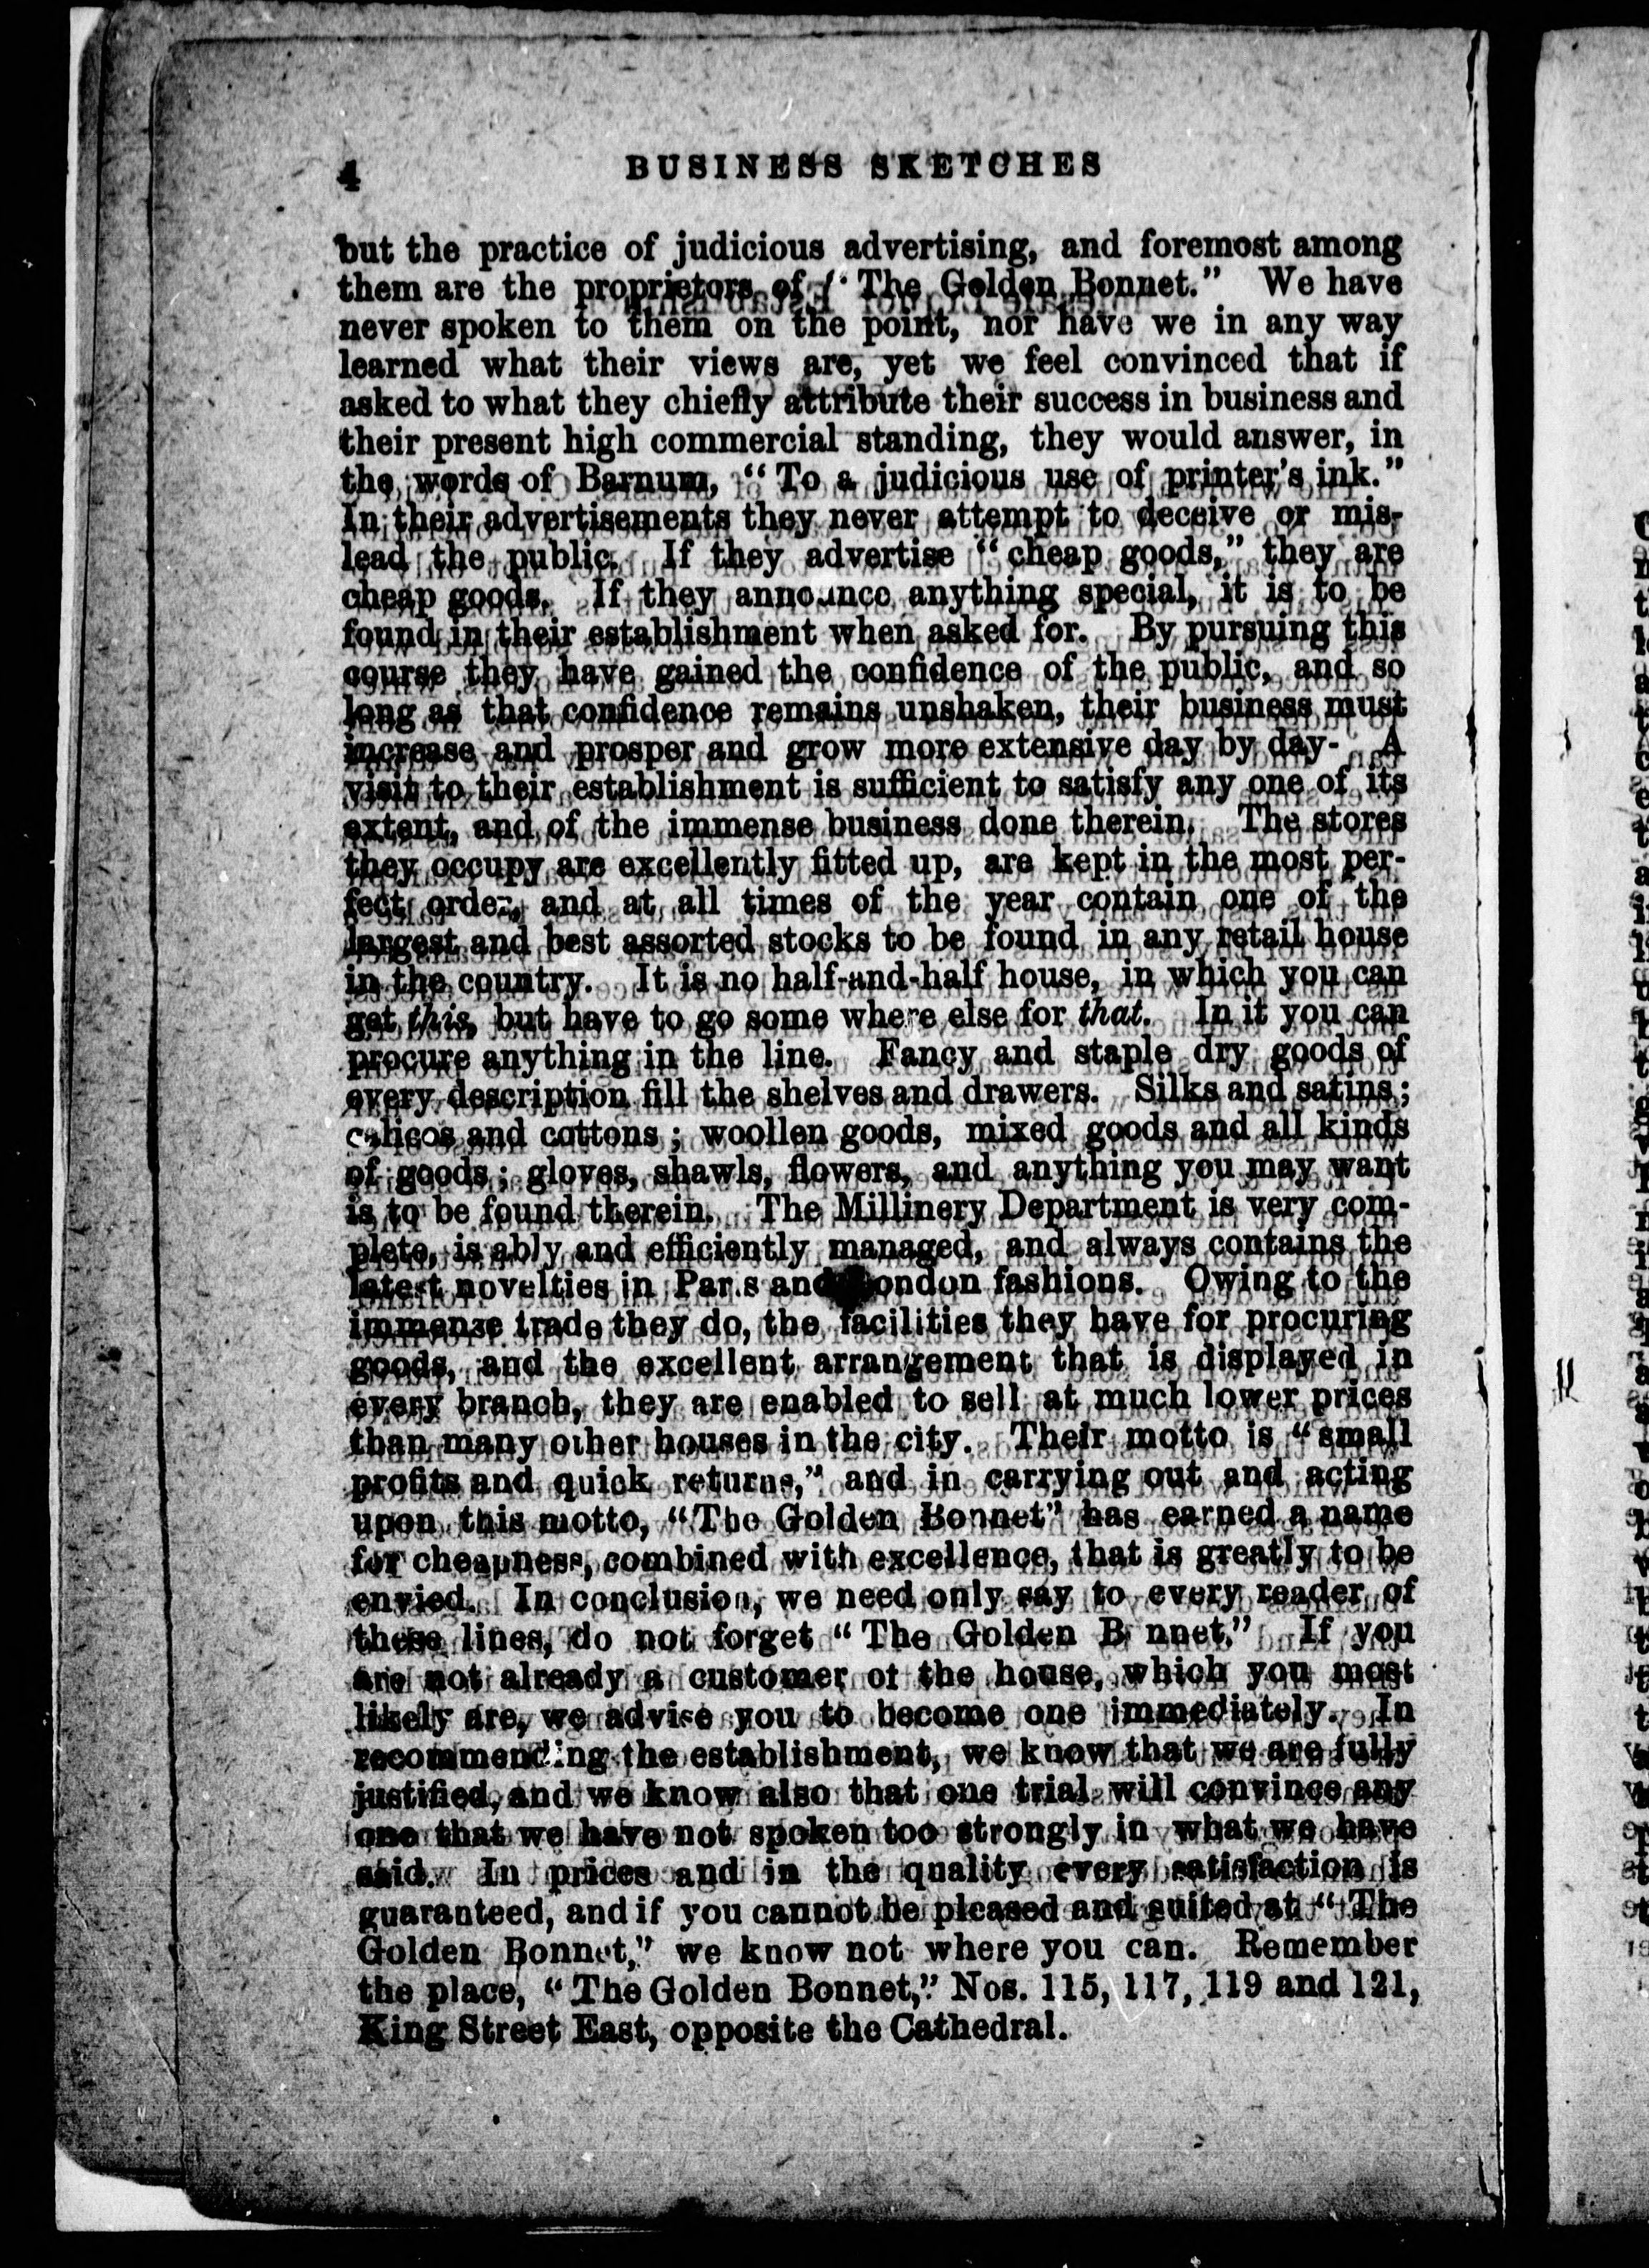 4 BUSINESS SKETCHES
but the practice of judicious advertising, and foremost among
them are the proprietors of "The Golden Bonnet." We have
never spoken to them on the point, nor have we in any way
learned what their views are, yet we feel convinced that if
asked to what they chiefly attribute their success in business and
their present high commercial standing, they would answer, in
the words of Barnum, "To a judicious use of printer's ink."
In their advertisements they never attempt to deceive or mis-
lead the public. If they advertise "cheap goods," they are
cheap goods. If they announce anything special, it is to be
found in their establishment when asked for. By pursuing this
course they have gained the confidence of the public, and so
long as that confidence remains unshaken, their business must
increase and prosper and grow more extensive day by day- A
visit to their establishment is sufficient to satisfy any one of its
extent, and of the immense business done therein. The stores
they occupy are excellently fitted up, are kept in the most per-
fect order, and at all times of the year contain one of the
largest and best assorted stocks to be found in any retail house
in the country. It is no half-and-half house, in which you can
get this, but have to go some where else for that. In it you can
procure anything in the line. Fancy and staple dry goods of
every description fill the shelves and drawers. Silks and satins;
calicos and cottons; woollen goods, mixed goods and all kinds
of goods; gloves, shawls, flowers, and anything you may want
is to be found therein. The Millinery Department is very com-
plete, is ably and efficiently managed, and always contains the
latest novelties in Paris and London fashions. Owing to the
immense trade they do, the facilities they have for procuring
goods, and the excellent arrangement that is displayed in
every branch, they are enabled to sell at much lower prices
than many other houses in the city. Their motto is "small
profits and quick returns," and in carrying out and acting
upon this motto, "The Golden Bonnet" has earned a name
for cheapness, combined with excellence, that is greatly to be
envied. In conclusion, we need only say to every reader of
these lines, do not forget "The Golden B nnet." If you
are not already a customer of the house, which you most
likely are, we advise you to become one immediately. In
recommending the establishment, we know that we are fully
justified, and we know also that one trial will convince any
one that we have not spoken too strongly in what we have
said. In prices and in the quality every satisfaction is
guaranteed, and if you cannot be pleased and suited at "The
Golden Bonnet," we know not where you can. Remember
the place, "The Golden Bonnet," Nos. 115, 117, 119 and 121,
King Street East, opposite the Cathedral.